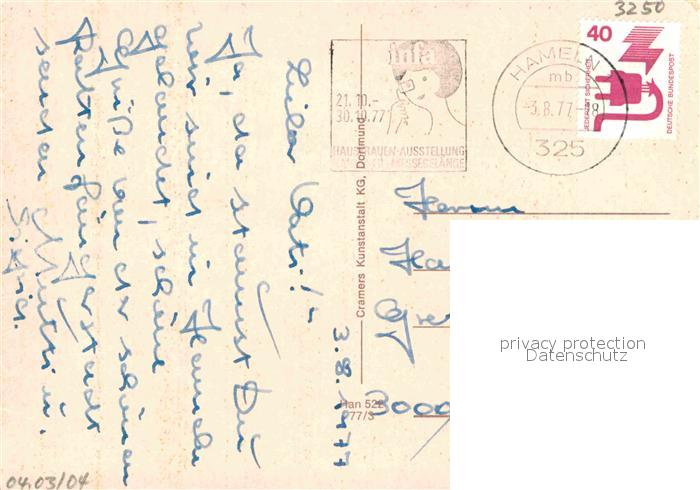 3250
40
JEDERZEIT SICHERHEIT
DEUTSCHE BUNDESPOST
HAMELN
mb
-3.8.77-18
325
infa
21.10.-
30.10.77
HAUSFRAUEN-AUSSTELLUNG
MESSEGELÄNDE
3.8.1977
Lieber Vati!-
Ja, da staunst Du
wir sind in Hameln
gelandet, schöne
Grüße von der schönen
Rattenfängerstadt
senden Mutti u.
Sigrid.
Cramers Kunstanstalt KG, Dortmund
Han 522
777/3
Herrn
Ha
3000
privacy protection
Datenschutz
04.03/04